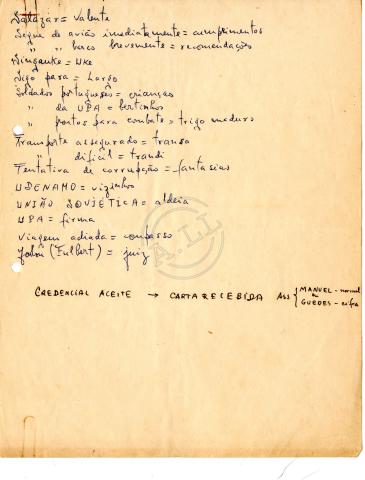 Salazar = Valente
Segue de avião imediatamente = cumprimentos
" " barco brevemente = recomendações
= UKE
Sigo para = Largo
Soldados portugueses = crianças
" da UPA = bertinhos
" prontos para combate = trigo maduro
Transporte assegurado = transa
" difícil = trandi
Tentativa de corrupção = fantasias
UDENAMO = vizinho
UNIÃO SOVIÉTICA = aldeia
UPA = firma
Viagem adiada = compasso
(Fulbert) = juiz
CREDENCIAL ACEITE → CARTA RECEBIDA ASS { MANUEL - normal
GUEDES - cifra
A.LL